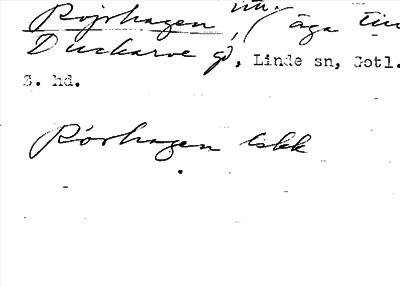 Röjrhagen, äga till
Duckarve gd, Linde sn, Gotl.
S. hd.
Rörhagen lskk